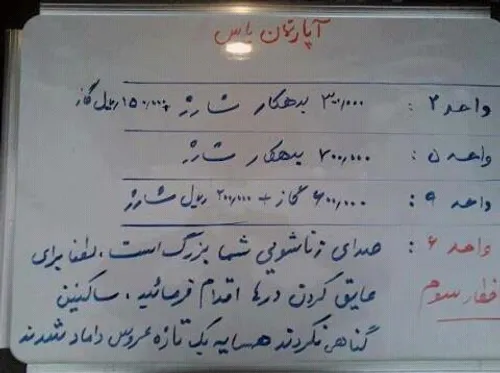 آپارتمان یاس
واحد ۲ : ۳۰۰٫۰۰۰ بدهکار شارژ + ۱۵۰٫۰۰۰ ریال گاز
واحد ۵ : ۷۰۰٫۰۰۰ بدهکار شارژ
واحد ۹ : ۶۰۰٫۰۰۰ گاز + ۲۰۰٫۰۰۰ ریال شارژ
واحد ۶ : صدای زناشویی شما بزرگ است . لطفا برای
اخطار سوم عایق کردن درها اقدام فرمائید . ساکنین
گناهی نکردند همسایه یک تازه عروس داماد شدند